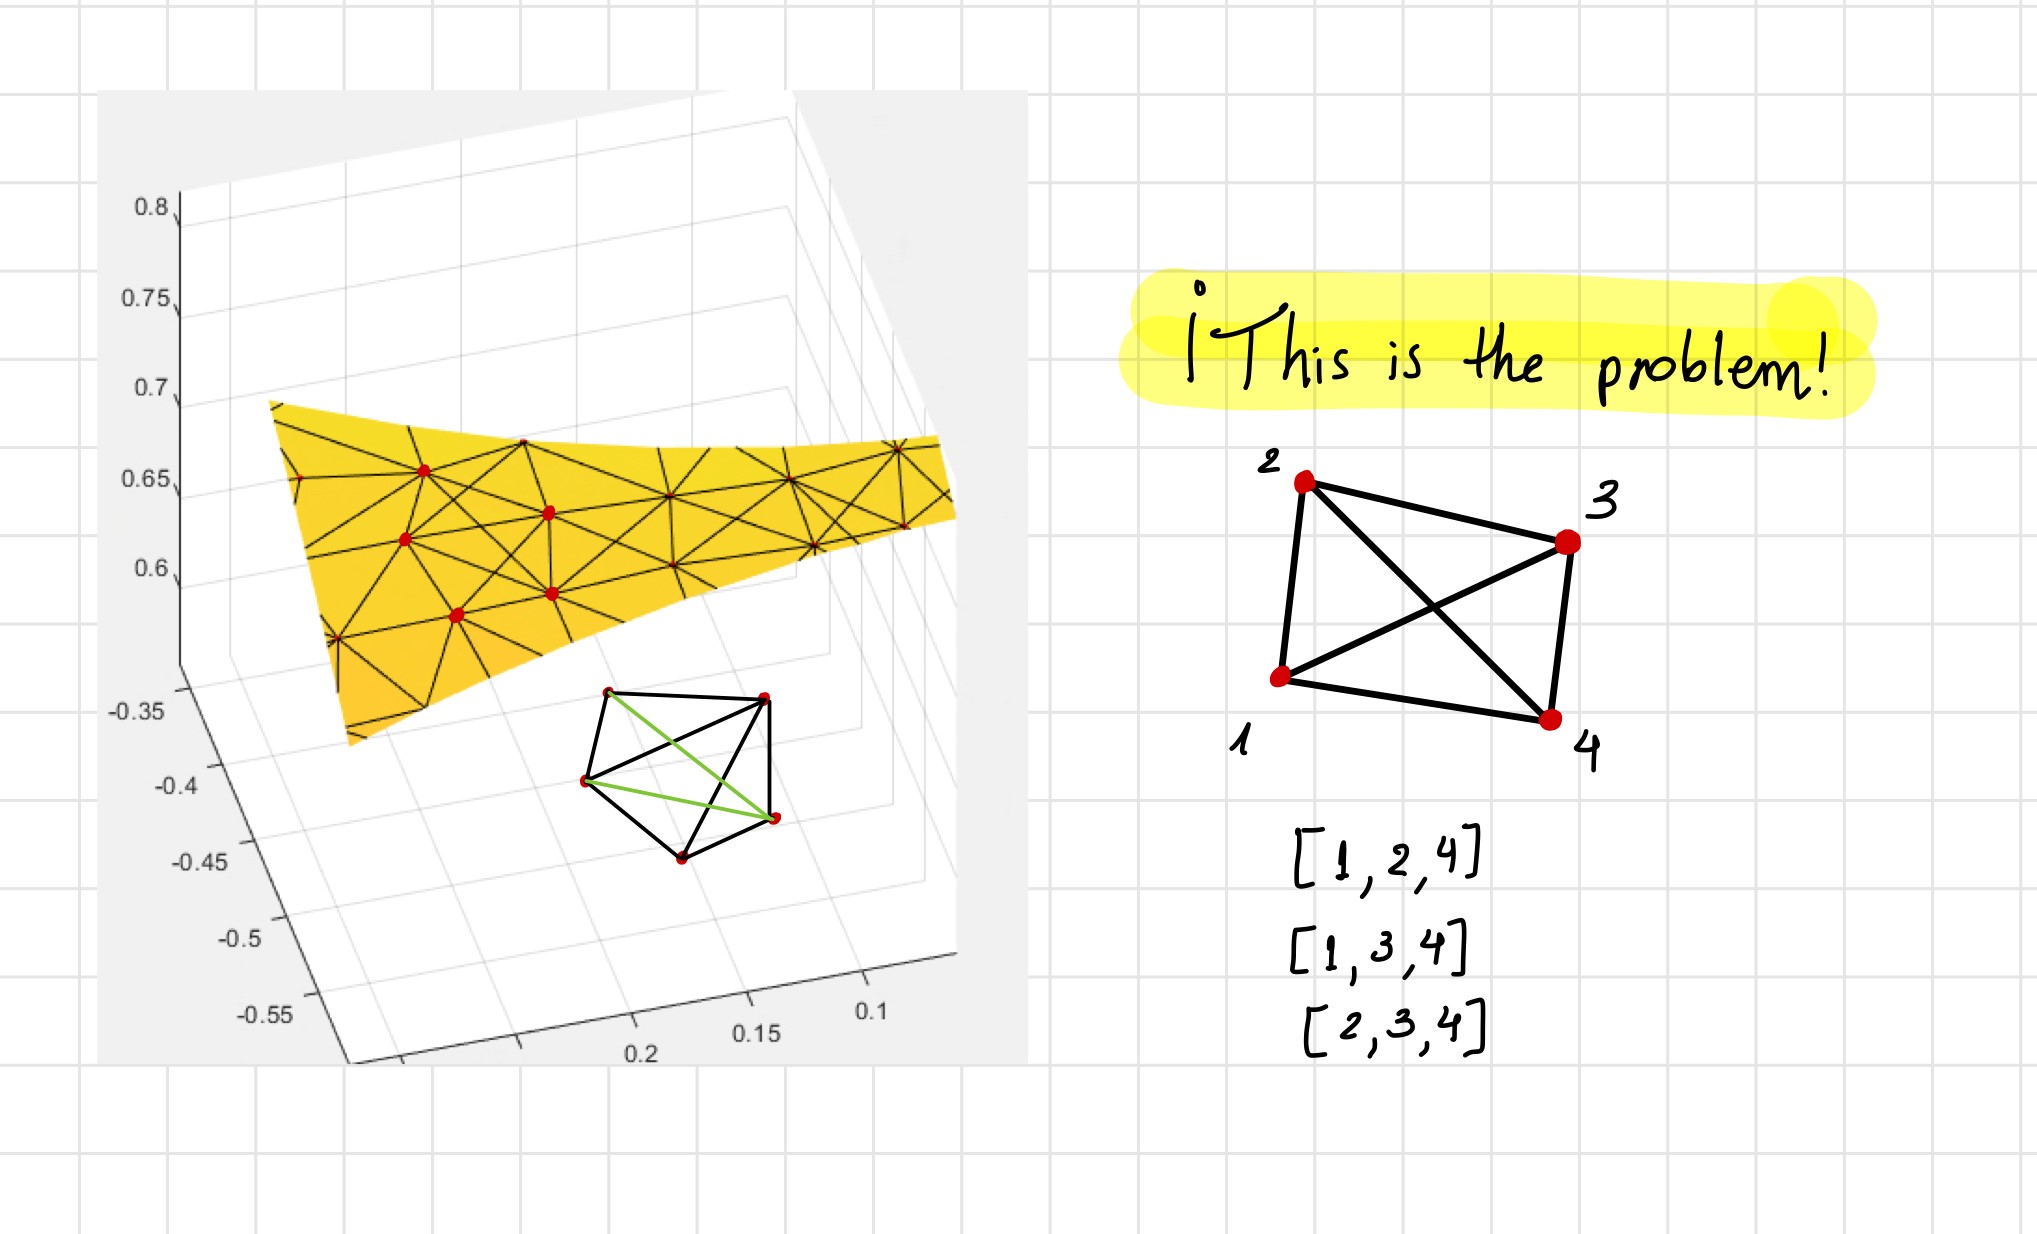 0.8
0.75
0.7
0.65
0.6
-0.35
-0.4
-0.45
-0.5
-0.55
0.2
0.15
0.1
¡This is the problem!
2
3
1
4
[1,2,4]
[1,3,4]
[2,3,4]